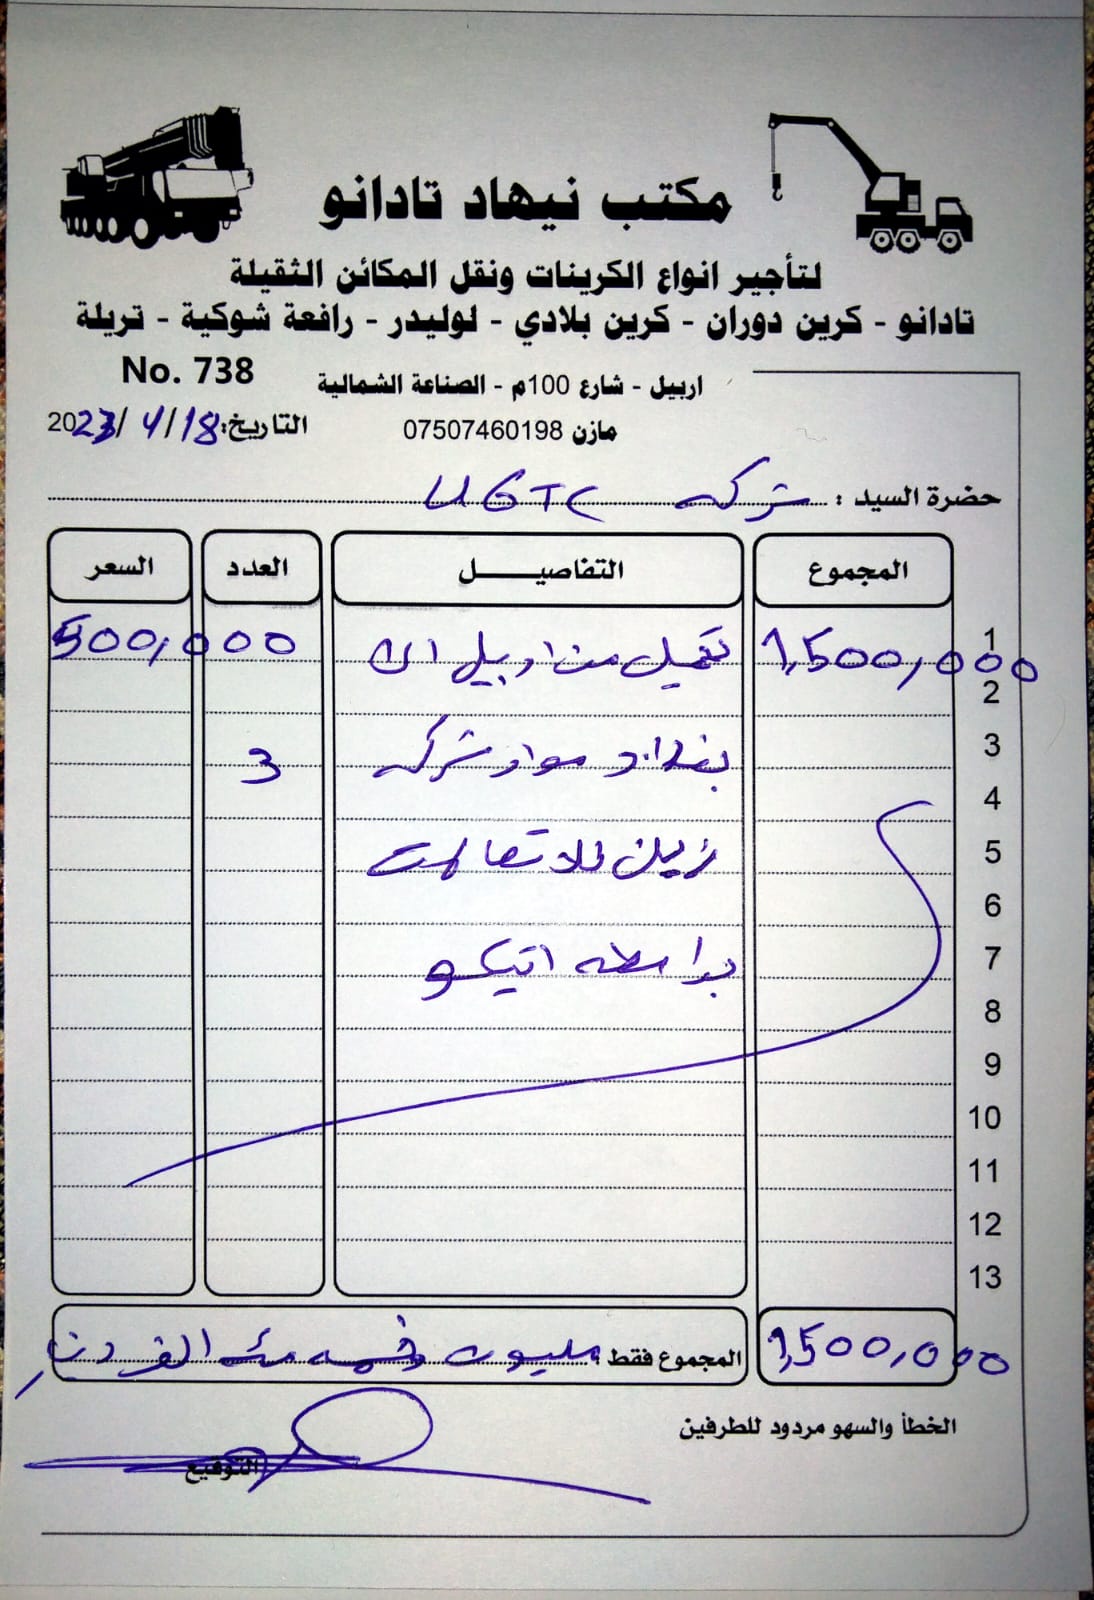 مكتب نيهاد تادانو
لتأجير انواع الكرينات ونقل المكائن الثقيلة
تادانو - كرين دوران - كرين بلادي - لوليدر - رافعة شوكية - تريلة
No. 738
اربيل - شارع 100م - الصناعة الشمالية
التاريخ: 18/4/2023
مازن 07507460198
حضرة السيد : شركه UGTC
المجموع التفاصيل العدد السعر
1 1,500,000 تحميل من اربيل الى 500,000
2
3 بغداد مواد شركه 3
4
5 زين للاتصالات
6
7 اتيكو
8
9
10
11
12
13
1,500,000 المجموع فقط : مليون خمسه مئه الف دينار
الخطأ والسهو مردود للطرفين
التوقيع